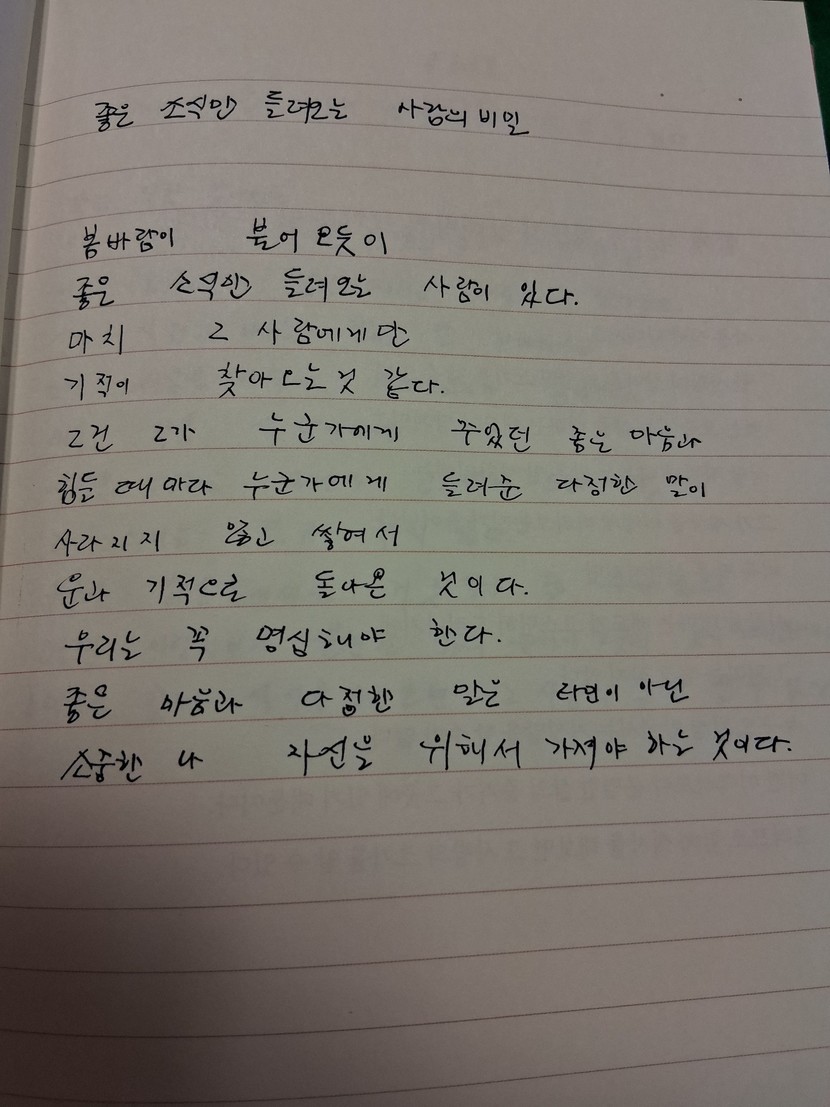 좋은 소식만 들려오는 사람의 비밀
봄바람이 불어 오듯이
좋은 소식만 들려 오는 사람이 있다.
마치 그 사람에게만
기적이 찾아 오는 것 같다.
그건 그가 누군가에게 주었던 좋은 마음과
힘들 때마다 누군가에게 들려준 다정한 말이
사라지지 않고 쌓여서
운과 기적으로 돌아온 것이다.
우리는 꼭 명심해야 한다.
좋은 마음과 다정한 말은 타인이 아닌
소중한 나 자신을 위해서 가져야 하는 것이다.